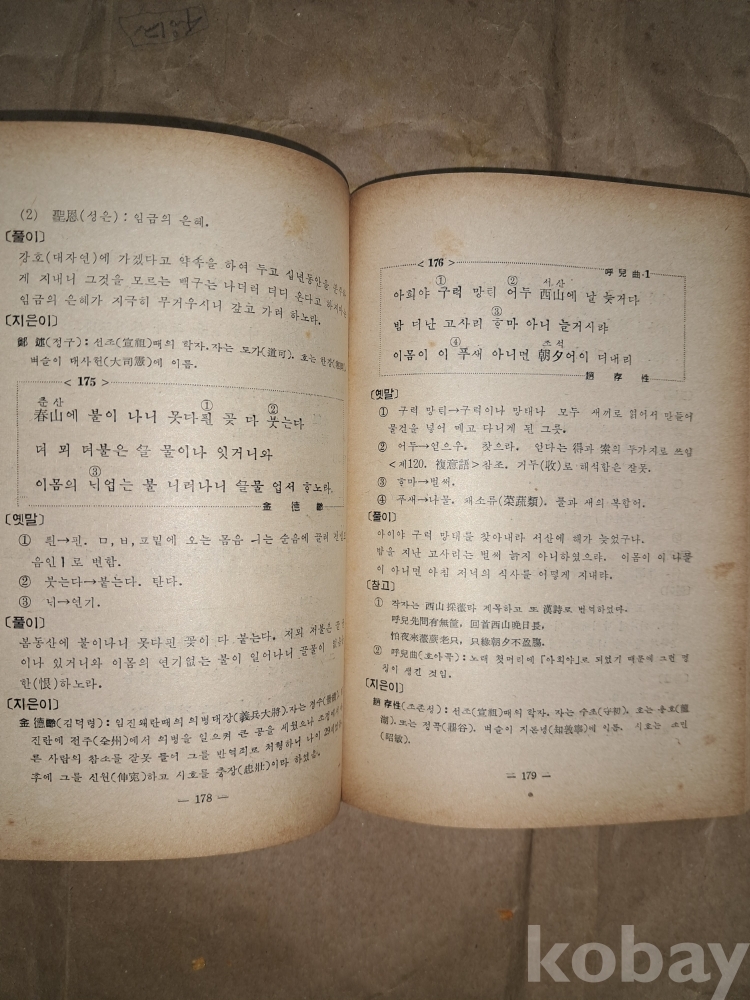 (2) 聖恩(성은) : 임금의 은혜.
[풀이]
강호(대자연)에 가겠다고 약속을 하여 두고 십년동안을
게 지내니 그것을 모르는 백구는 나더러 더디 온다고
임금의 은혜가 지극히 무거우시니 갚고 가려 하노라.
[지은이]
鄭逑(정구) : 선조(宣祖)때의 학자. 자는 도가(道可). 호는
벼슬이 대사헌(大司憲)에 이름.
< 175 >
춘산 ① ②
春山에 불이 나니 못다 퓐 꽃 다 붓는다
더 뫼 더불은 끌 물이나 잇거니와
③
이몸의 늬업는 불 니러나니 끌물 업서 ᄒᆞ노라.
金德齡
[옛말]
① 퓐→핀. ㅁ, ㅂ, ㅍ밑에 오는 모음 ㅡ는 순음에 끌려
음인ㅣ로 변함.
② 붓는다→붙는다. 탄다.
③ 늬→연기.
[풀이]
봄동산에 불이나니 못다핀 꽃이 다 붙는다. 저뫼 저불은 끌
이나 있거니와 이몸의 연기없는 불이 일어나니 끌물이
한(恨)하노라.
[지은이]
金德齡(김덕령) : 임진왜란때의 의병대장(義兵大將). 자는 경수
진란에 전주(全州)에서 의병을 일으켜 큰 공을 세웠으나
른 사람의 참소를 잘못 들어 그를 반역죄로 처형하니 나이 29세
후에 그를 신원(伸寃)하고 시호를 충장(忠壯)이라 하였음.
— 178 —
< 176 >
呼兒曲·1
① ② 서산
아희야 구럭 망틔 어두 西山에 날 늦거다
③
밤 디난 고사리 ᄒᆞ마 아니 늘거시랴
④ 조석
이몸이 이 푸새 아니면 朝夕어이 디내리
趙存性
[옛말]
① 구럭 망틔→구럭이나 망태나 모두 새끼로 얽어서 만들어
물건을 넣어 메고 다니게 된 그릇.
② 어두→얻으우. 찾으라. 얻다는 得과 索의 두가지로 쓰임
<제120. 複意語>참조. 거두(收)로 해석함은 잘못.
③ ᄒᆞ마→벌써.
④ 푸새→나물. 채소류(菜蔬類). 풀과 새의 복합어.
[풀이]
아이야 구럭 망태를 찾아내라 서산에 해가 늦었구나.
밤을 지난 고사리는 벌써 늙지 아니하였으랴. 이몸이 이 나물
이 아니면 아침 저녁의 식사를 어떻게 지내랴.
[참고]
① 작자는 西山採薇라 제목하고 또 漢詩로 번역하였다.
呼兒先問有無筐, 回首西山晩日長,
怕夜來薇蕨老只, 只緣朝夕不盈腸.
② 呼兒曲(호아곡) : 노래 첫머리에 「아희야」로 되었기 때문에 그런 명
칭이 생긴 것임.
[지은이]
趙存性(조존성) : 선조(宣祖)때의 학자. 자는 수초(守初). 호는 용호(龍
湖). 또는 정곡(鼎谷). 벼슬이 지돈녕(知敦寧)에 이름. 시호는 소민
(昭敏).
— 179 —
kobay